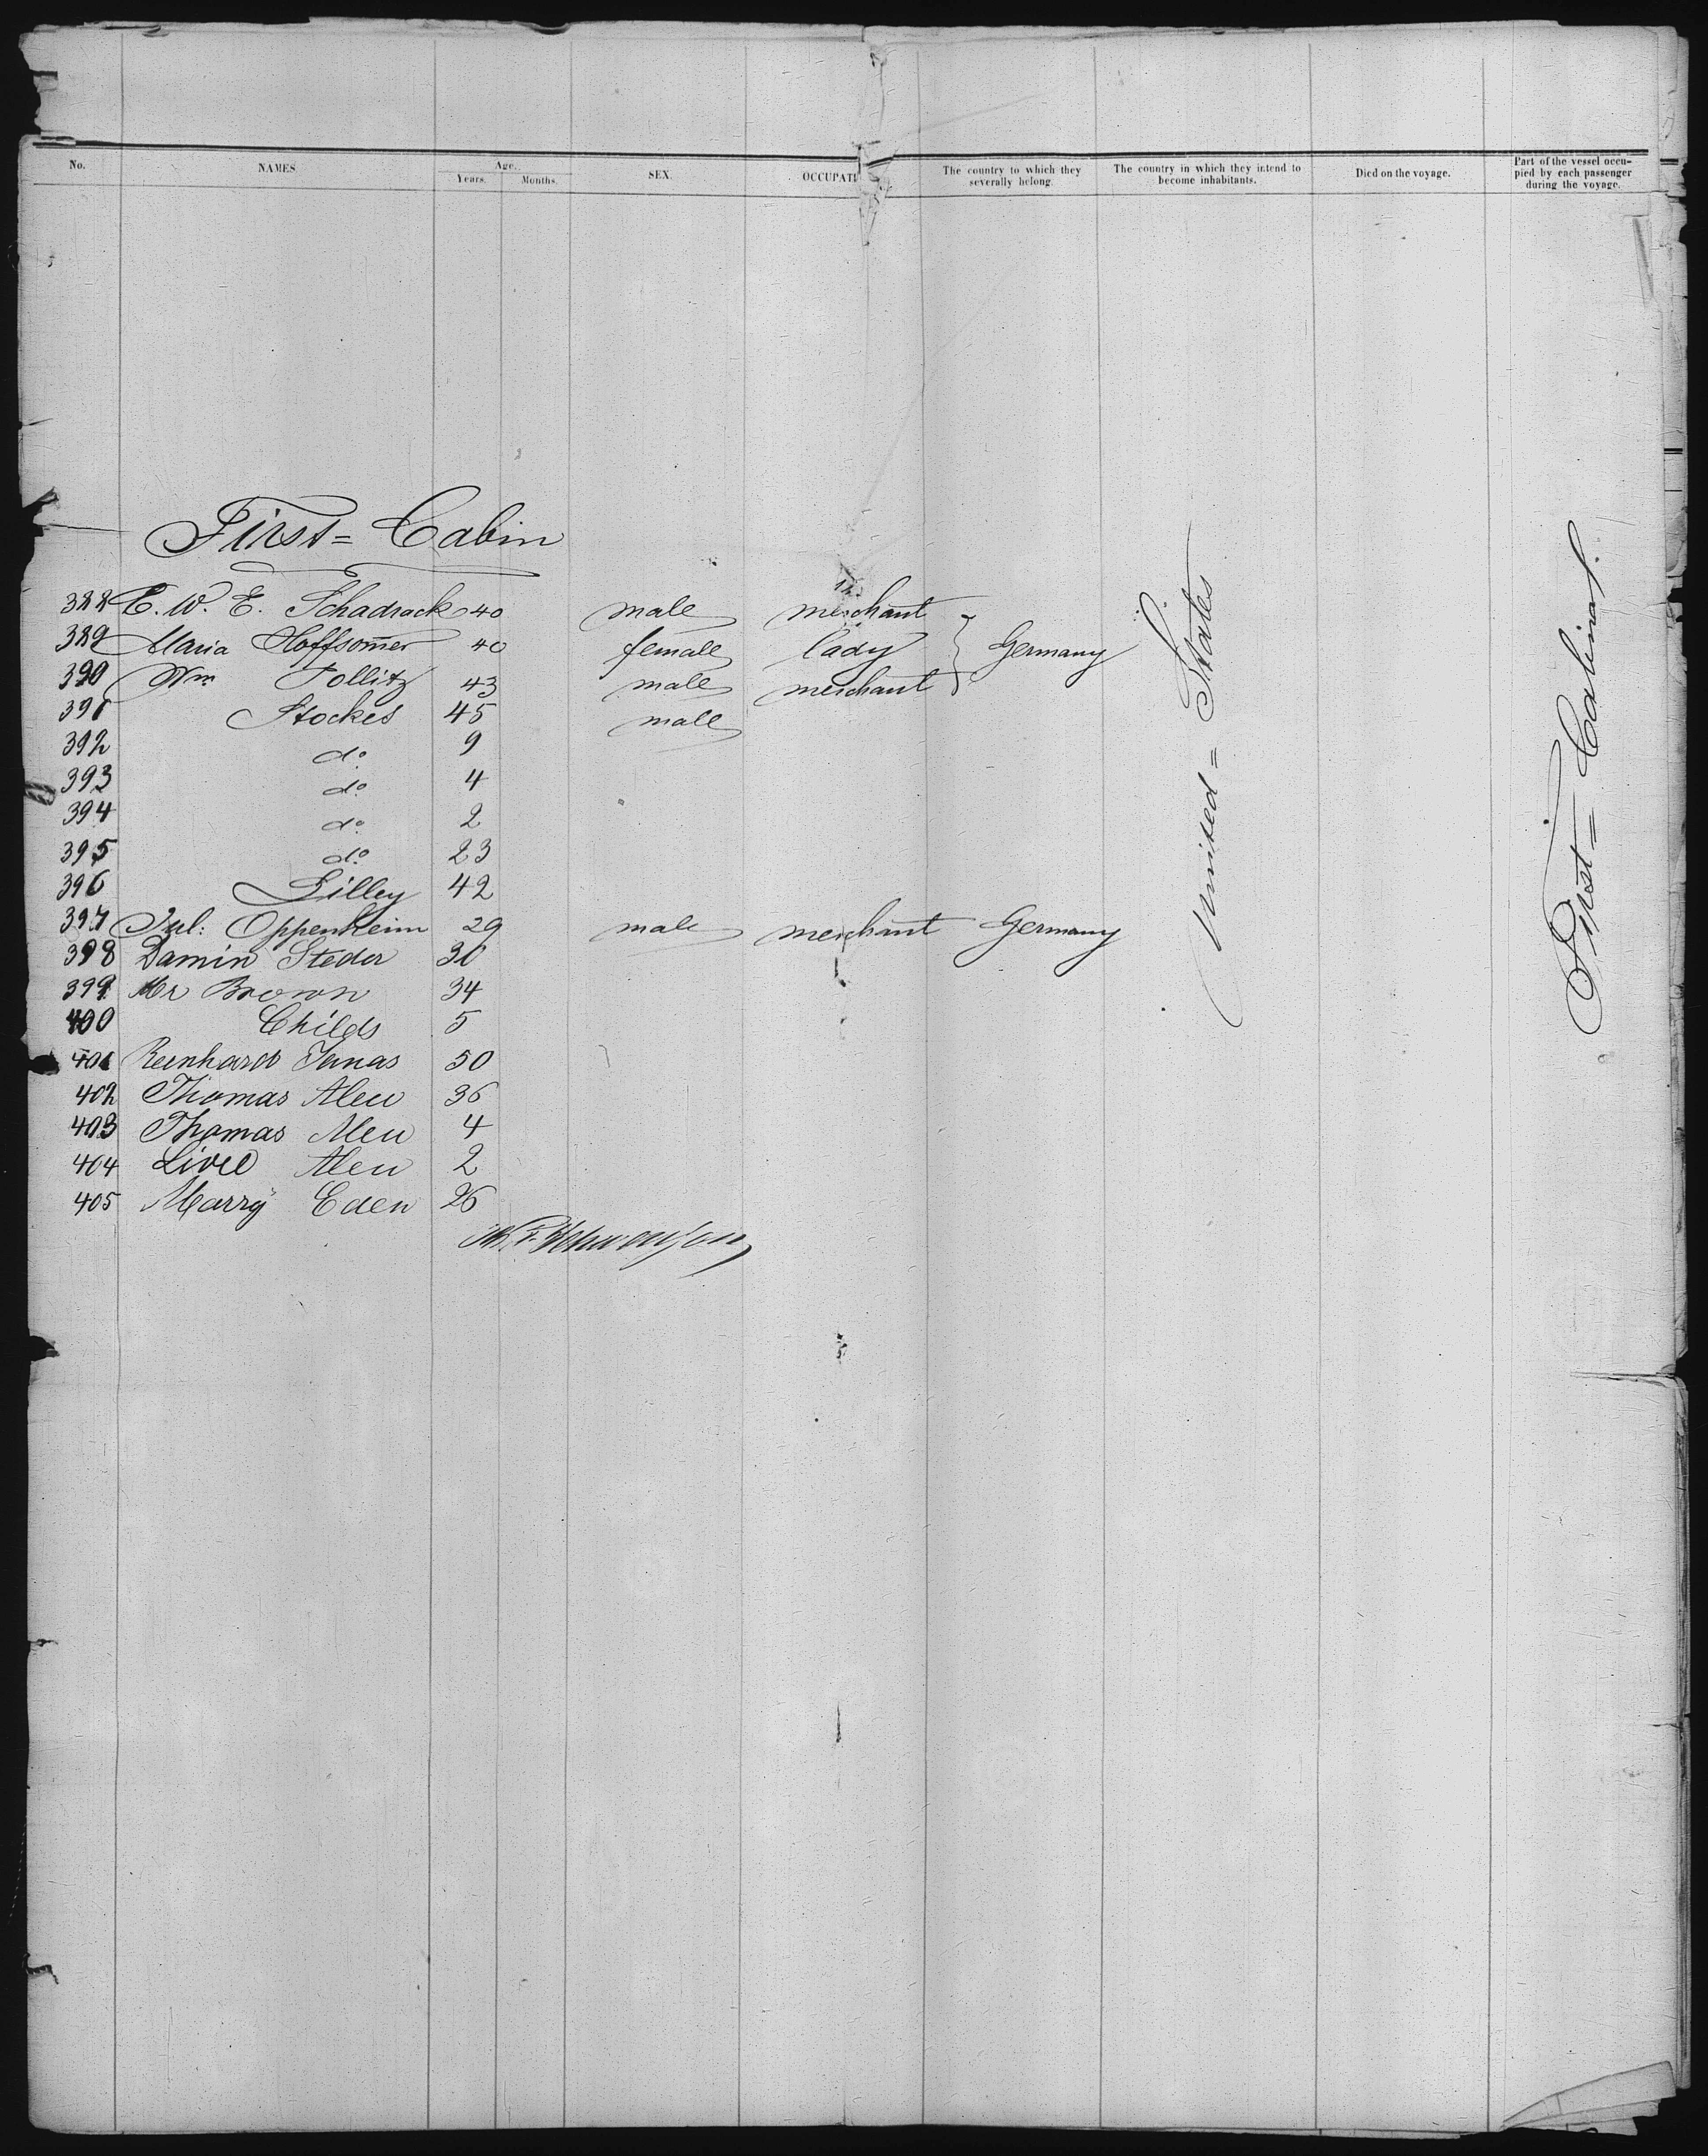 No. NAMES Age. Years. Months. SEX. OCCUPATI The country to which they severally belong. The country in which they intend to become inhabitants. Died on the voyage. Part of the vessel occu-pied by each passenger during the voyage.
First = Cabin
388 C. W. E. Schadrack 40 male merchant
389 Maria Hoffsom̄er 40 female lady Germany
390 Wm Pollitz 43 male merchant
391 Stockes 45 male
392 do 9
393 do 4
394 do 2
395 do 23
396 Lilley 42
397 Jul: Oppenheim 29 male merchant Germany
398 Damin Steder 30
399 Mr Brown 34
400 Childs 5
401 Reinhard Jonas 50
402 Thomas Aleu 36
403 Thomas Aleu 4
404 Livie Aleu 2
405 Marry Eden 26
United = States
First = Cabin